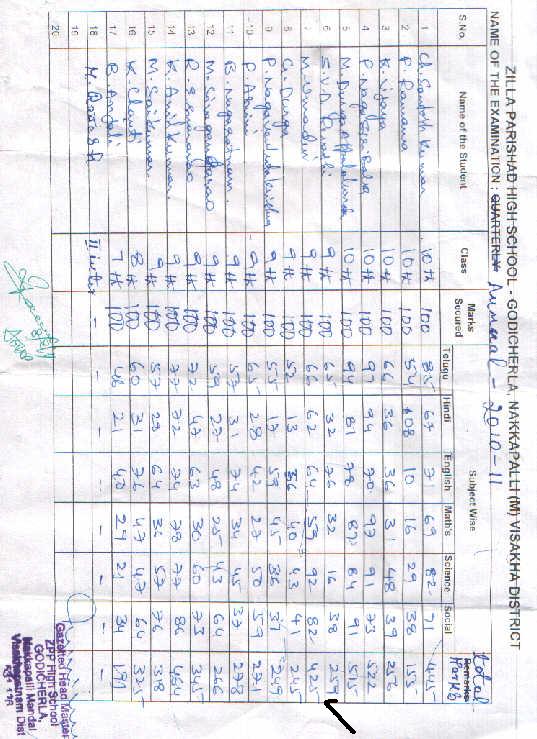 ZILLA PARISHAD HIGH SCHOOL - GODICHERLA, NAKKAPALLI (M) VISAKHA DISTRICT
NAME OF THE EXAMINATION : QUARTERLY Annual - 2010-11
S.No. Name of the Student Class Marks Secured Subject Wise Total Marks Remarks
Telugu Hindi English Math's Science Social
1 Ch. Santosh Kumar 10th 100 85 67 71 69 82 71 445
2 P. Ramana 10th 100 54 08 10 16 29 38 155
3 K. Vijaya 10th 100 66 36 36 31 48 39 256
4 P. Naga 10th 100 97 94 70 97 91 73 522
5 M. Durga Appalakonda 10th 100 94 81 78 87 84 91 515
6 S.V.D. Revathi 9th 100 65 32 76 32 16 38 259
7 M. Umadevi 9th 100 66 62 64 59 92 82 425
8 Ch. Durga 9th 100 52 13 56 40 43 41 245
9 P. 9th 100 55 17 59 45 36 37 249
10 P. Asiri 9th 100 65 28 42 27 50 59 271
11 B. Nagaratnam 9th 100 57 31 74 34 45 37 278
12 M. Sivagangarao 9th 100 59 27 48 25 43 64 266
13 R. Eswararao 9th 100 72 47 63 30 60 73 345
14 K. Anil Kumar 9th 100 77 72 74 78 77 86 464
15 M. Saikumar 9th 100 57 29 64 36 57 76
16 K. Chanti 8th 100 60 31 76 47 47 64 325
17 B. Anjali 7th 100 48 21 40 27 21 34 191
18 M. II inter - - - - - - - -
19
20
Gazetted Head Master
ZPP High School
GODICHERLA,
Nakkapalli Mandal
Visakhapatnam Dist